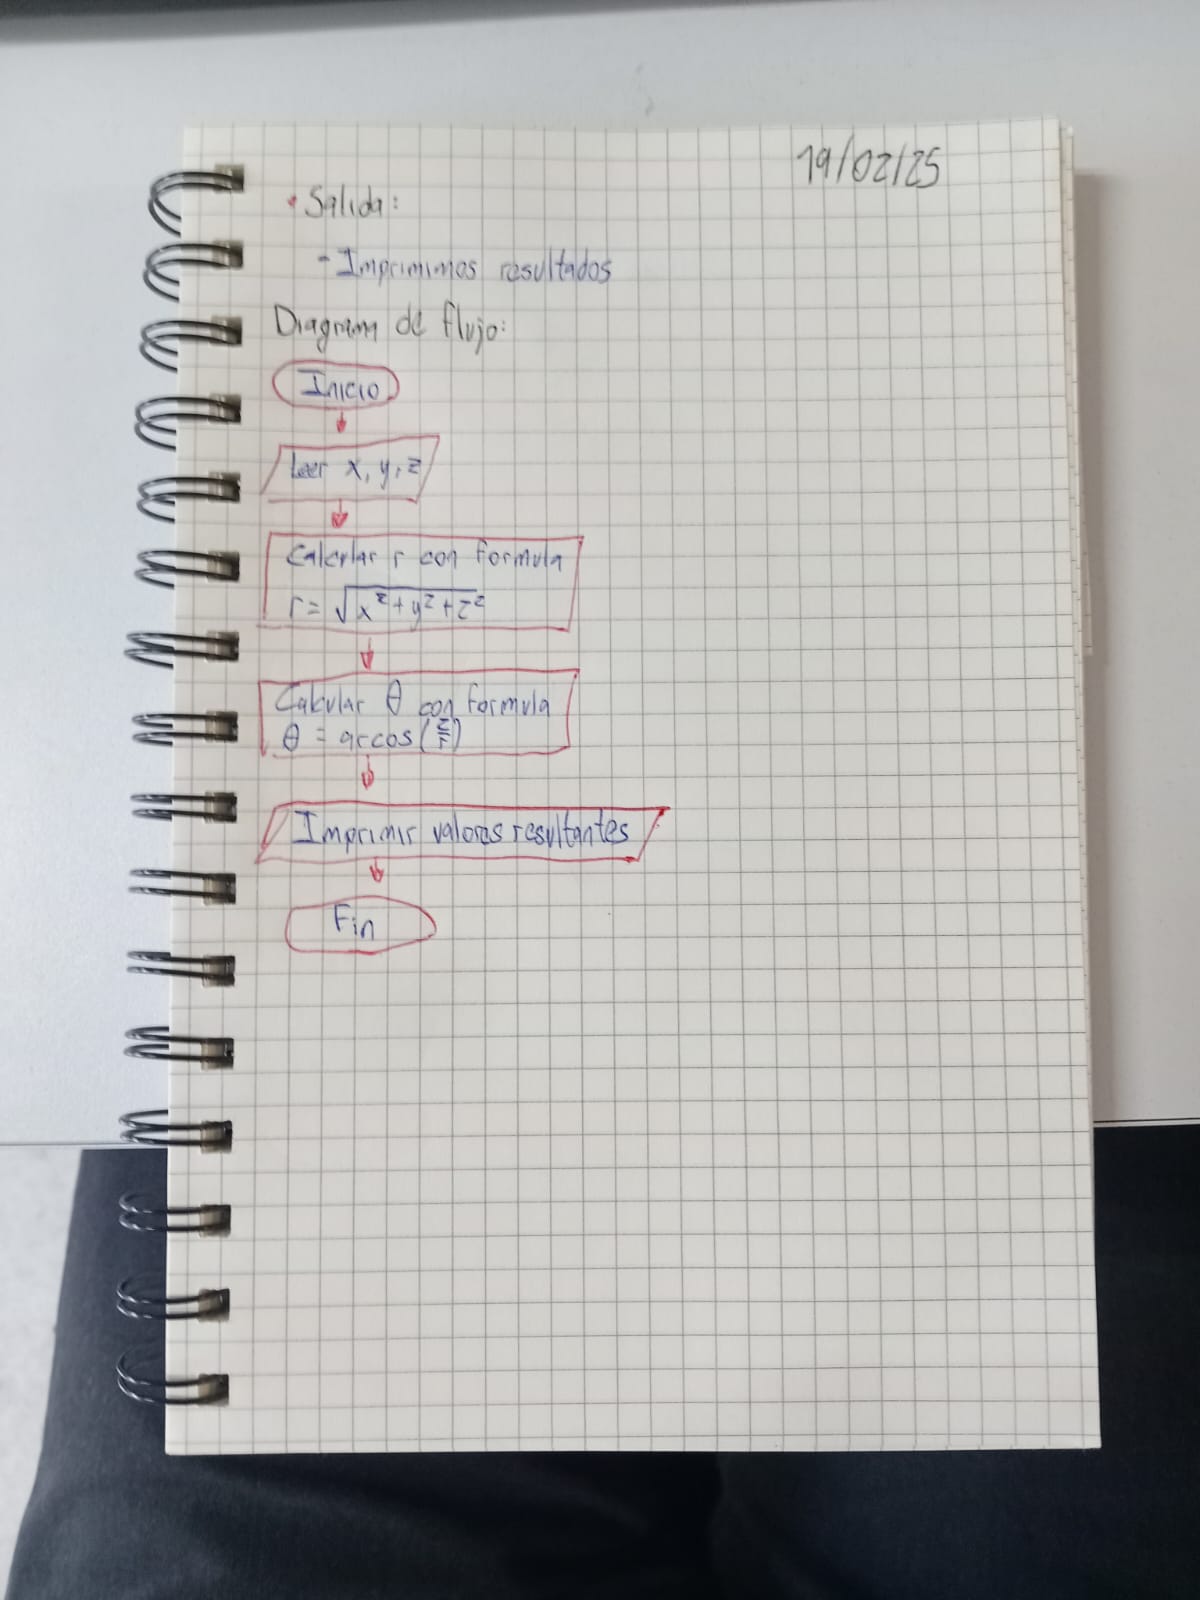 19/02/25
• Salida:
- Imprimimos resultados
Diagrama de flujo:
Inicio
Leer x, y, z
Calcular r con formula
r = √x²+y²+z²
Calcular θ con formula
θ = arcos(z/r)
Imprimir valores resultantes
Fin